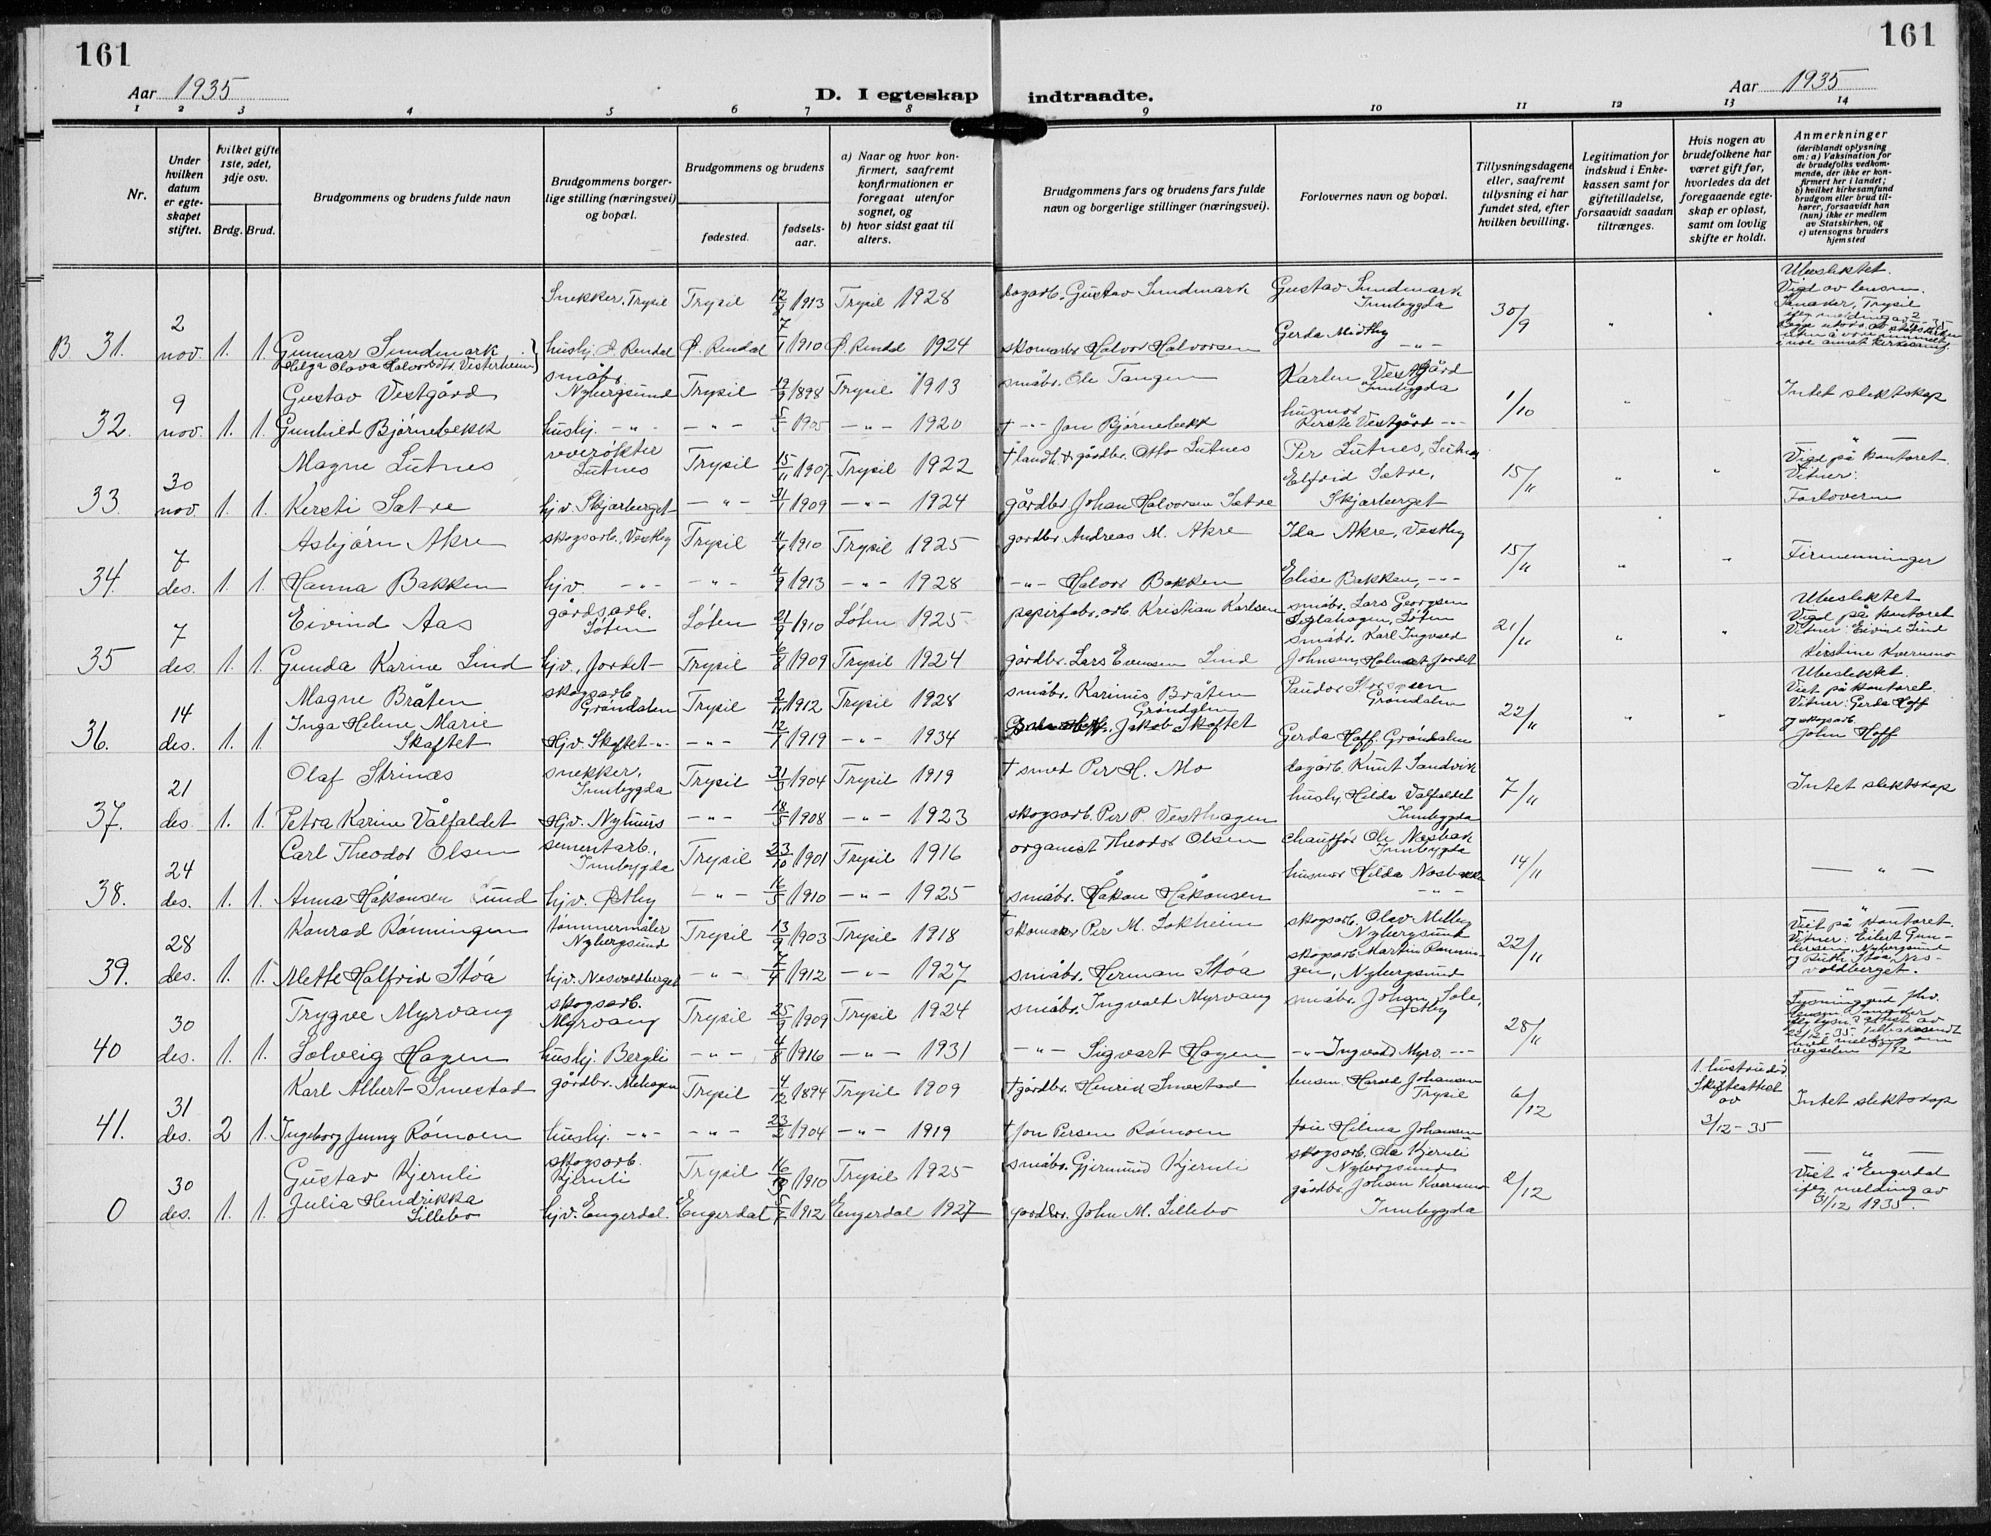 161
161
Aar 1935
D. I egteskap indtraadte.
Aar 1935
1 2 3 4 5 6 7 8 9 10 11 12 13 14
Nr.
Under hvilken datum er egteskapet stiftet.
hvilket gifte 1ste, 2det, 3dje osv.
Brdg. Brud.
Brudgommens og brudens fulde navn
Brudgommens borgerlige stilling (næringsvei) og bopæl.
Brudgommens og brudens
fødested.
fødselsaar.
a) Naar og hvor konfirmert, saafremt konfirmationen er foregaat utenfor sognet, og
b) hvor sidst gaat til alters.
Brudgommens fars og brudens fars fulde navn og borgerlige stillinger (næringsvei).
Forlovernes navn og bopæl.
Tillysningsdagene eller, saafremt tillysning ei har fundet sted, efter hvilken bevilling.
Legitimation for indskud i Enkekassen samt for giftetilladelse, forsaavidt saadan tiltrænges.
Hvis nogen av brudefolkene har været gift før, hvorledes da det foregaaende egteskap er opløst, samt om lovlig skifte er holdt.
Anmerkninger
(deriblandt oplysning om: a) Vaksination for de brudefolks vedkommende, der ikke er konfirmert her i landet; b) hvilket kirkesamfund brudgom eller brud tilhører, forsaavidt han (hun) ikke er medlem av Statskirken, og c) utensogns bruders hjemsted
Snekker, Trysil Trysil 12/8 1913 Trysil 1928 dagarb. Gustav Sundmark Gustav Sundmark Innbygda 30/9 Ubeslektet. Vigd av lensm.
B 31. 2 nov. 1. 1. Gunnar Sundmark
Helga Olava Halvorsdtr. Vesterheim husbj. Ø. Rendal Ø. Rendal 7/1 1910 Ø. Rendal 1924 skomaker Halvor Halvorsen Gerda Midtby -"-
Gustav Vestgård småbr. Nybergsund Trysil 1898 Trysil 1913 småbr. Ole Tangen Karlen Vestgård Innbygda 1/10 Intet slektskap
32. 9 nov. 1. 1. Gunhild Bjørnebekk husbj. -"- -"- -"- 1920 † -"- Jon Bjørnebekk husmor Kirsti Vestgård -"-
Magne Lutnes reverøkter Lutnes Trysil 15/11 1907 Trysil 1922 † landh. & gårdbr. Otto Lutnes Per Lutnes, Lutnes 15/11 Vigd på kontoret.
33. 30 nov. 1. 1. Kersti Sætre hj.v. Skjærberget -"- 1909 -"- 1924 gårdbr. Johan Halvorsen Sætre Elfrid Sætre, Skjærberget Vitner: Forloverne
Asbjørn Akre skogsarb., Vestby Trysil 1910 Trysil 1925 gårdbr. Andreas M. Akre Ida Akre, Vestby 15/11 Firmenninger
34. 7 des. 1. 1. Hanna Bakken hj.v. -"- -"- 4/9 1913 -"- 1928 -"- Halvor Bakken Elise Bakken, -"-
Eivind Aas gårdsarb. Løten Løten 21/9 1910 Løten 1925 papirfabr. arb. Kristian Karlsen småbr. Lars Georgsen Løten 21/11 Ubeslektet Vigd på kontoret
35 7 des. 1. 1. Gunda Karine Lind hj.v., Jordet Trysil 6/8 1909 Trysil 1924 gårdbr. Lars Evensen Lind småbr. Karl Ingvald Johnsen, Holmset Jordet Vitner: Eivind Lind Kirstine Kværnmo
Magne Bråten skogsarb. Grøndalen Trysil 2/11 1912 Trysil 1928 småbr. Karinius Bråten Grøndalen Grøndalen 22/11 Ubeslektet. Viet på kontoret.
36. 14 des. 1. 1 Inga Helene Marie Skaftet Hj.v. Skaftet -"- -"- 12/1 1919 -"- 1934 Jakob Skaftet Gerda Hoff. Grøndalen Vitner: Gerda Hoff og skogsarb. John Hoff
Olaf Strinæs snekker, Innbygda Trysil 31/3 1904 Trysil 1919 † smed Per H. Mo dagarb. Knut Sandvik 7/11 Intet slektskap
37. 21 des 1. 1. Petra Karine Vålfaldet Hj.v. Nyhuus -"- 18/5 1908 -"- 1923 skogsarb. Per P. Vesthagen husbj. Hilda Vålfaldet Innbygda
Carl Theodor Olsen sementarb., Innbygda Trysil 23/10 1901 Trysil 1916 organist Theodor Olsen chauffør Ole Næsbakk Innbygda 14/11 - " -
38. 24 des. 1. 1. Anna Håkonsen Lund hj.v. Østby -"- 16/5 1910 -"- 1925 småbr. Håkon Håkonsen husmor Hilda Næsbakk -"-
Konrad Rønningen tømmermåler Nybergsund Trysil 13/9 1903 Trysil 1918 † skomaker Per M. Løkheim skogsarb. Olav Melby Nybergsund 22/11 Viet på kontoret.
39. 28 des. 1. 1. Mette Halfrid Støa hj.v. Næsvoldberget -"- 7/4 1912 -"- 1927 småbr. Herman Støa skogsarb. Martin Rønningen, Nybergsund Vitner: Eilert Gundersen, Nybergsund og Ruth Støa, Næsvoldberget.
Trygve Myrvang skogsarb. Myrvang Trysil 25/9 1909 Trysil 1924 småbr. Ingvald Myrvang småbr. Johan Sole, Østby 28/11
40 30 des. 1. 1. Solveig Hagen husbj. Bergli -"- 4/8 1916 -"- 1931 -"- Sigvart Hagen -"- Ingvald Myrv. -"- vigselen 30/12
Karl Albert Smestad gårdbr. Mehagen Trysil 4/12 1894 Trysil 1909 † gårdbr. Henrik Smestad lensm. Harald Johansen Trysil 6/12 1. hustru død. Skifteattest av 3/12-35 Intet slektskap
41. 31 des. 2 1. Ingeborg Jenny Rømoen husbj. -"- -"- 23/2 1904 -"- 1919 † Jon Persen Rømoen frue Hilma Johansen
Gustav Kjernli skogsarb. Kjernli Trysil 16/10 1910 Trysil 1925 småbr. Gjermund Kjernli skogsarb. Ole Kjernli Nybergsund 2/12 - " - Viet i Engerdal
0 30 des. 1. 1. Julia Hendrikka Lillebo hj.v. Engerdal. Engerdal 5/7 1912 Engerdal 1927 gårdbr. John M. Lillebo gårdbr Johan Kværnmo Innbygda ifølg melding av 31/12 1935.